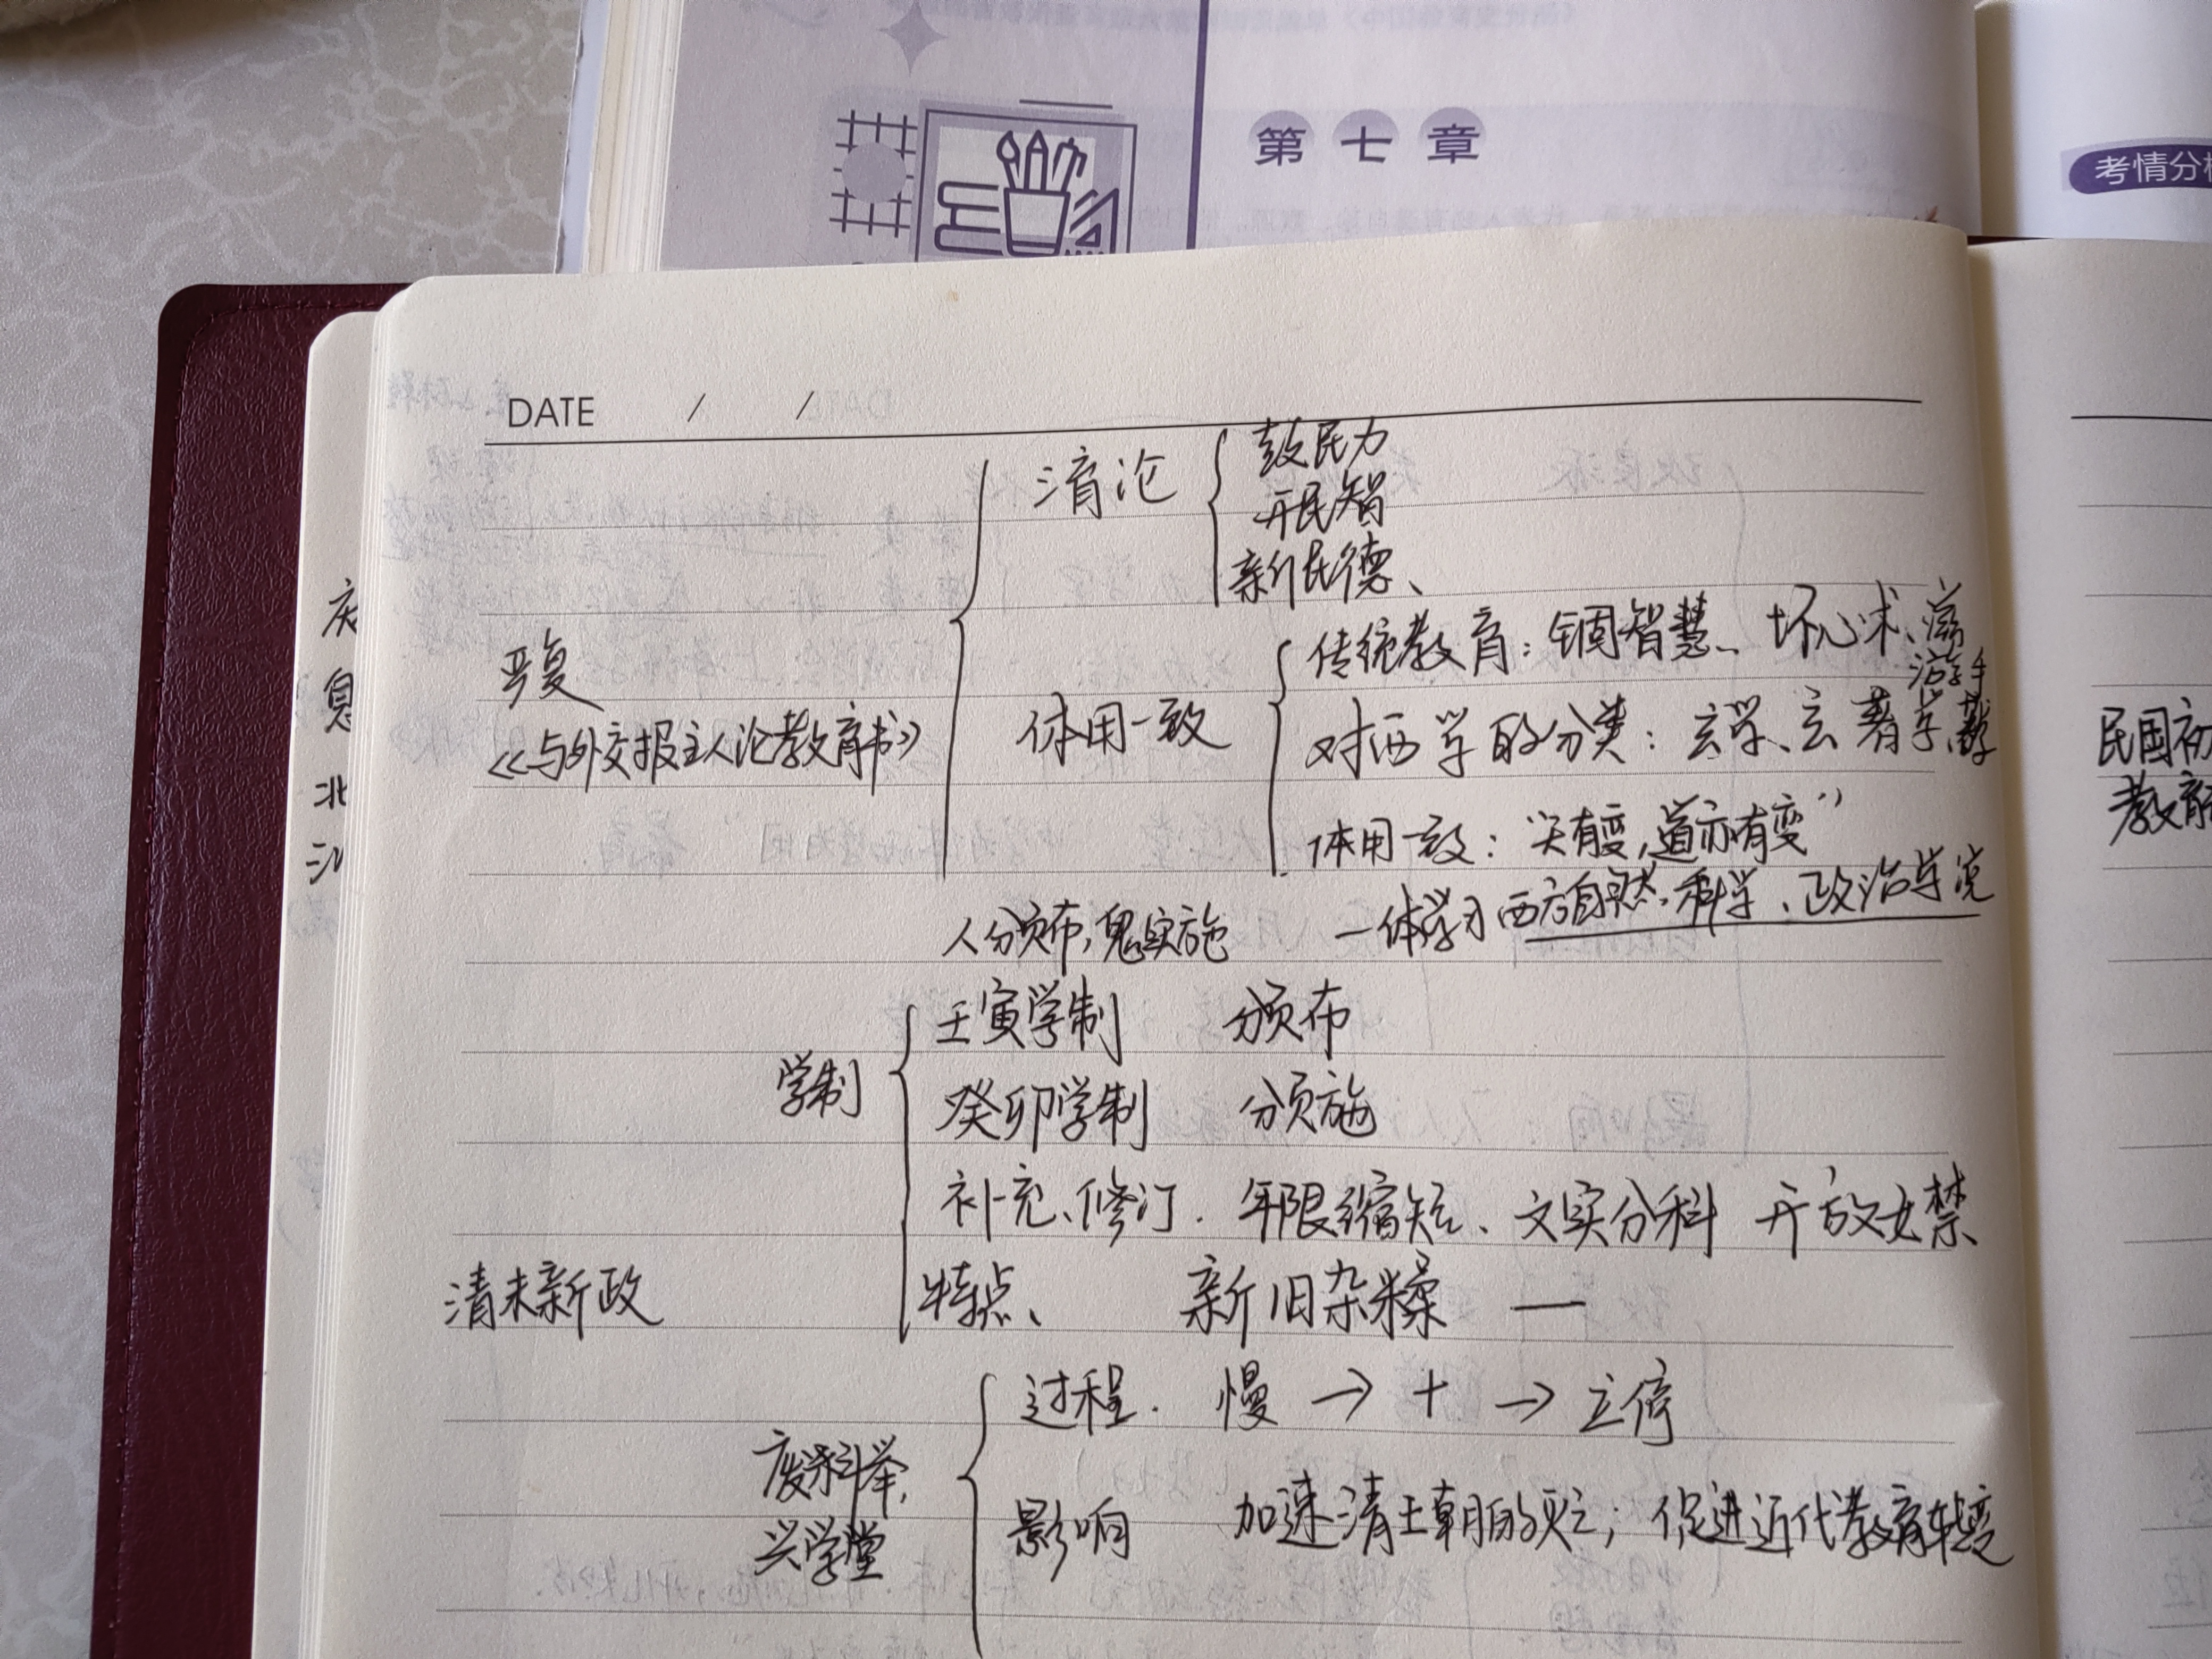 第七章
考情分
DATE / /
淯论
鼓民力
开民智
新民德、
严复
《与外交报主人论教育书》
体用一致
传统教育：锢智慧、坏心术、滋
游手
对西学的分类：玄学、玄著学、
体用一致：“天有变，道亦有变”
一体学习西方自然科学、政治学说
人颁布，鬼实施
学制
壬寅学制 颁布
癸卯学制 颁施
补充、修订. 年限缩短、文实分科 开放女禁
清末新政
特点、 新旧杂糅 —
废科举，
兴学堂
过程. 慢 → + → 立停
影响 加速清王朝的灭亡；促进近代教育转变
民国初
教育
息
北